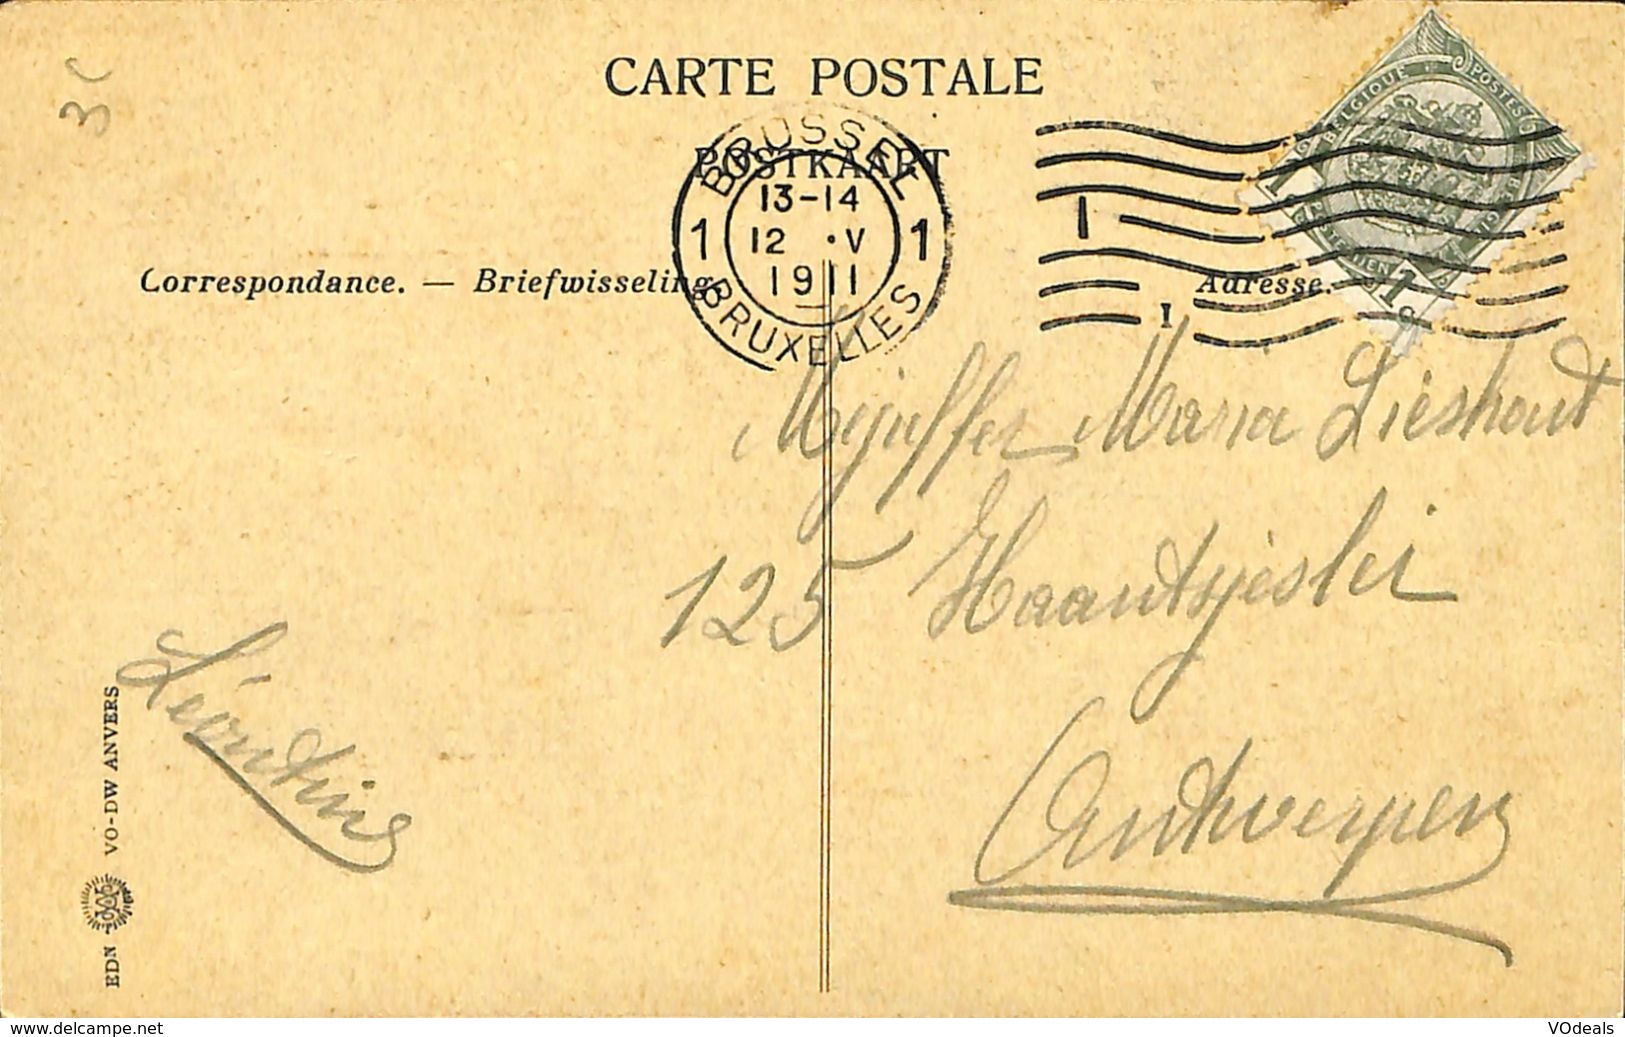 3c
CARTE POSTALE
POSTKAART
BRUSSEL
13-14
1 12 · V 1
1911
BRUXELLES
BELGIQUE POSTES
1 1
1 c
Correspondance. — Briefwisseling.
Adresse.
Mejuffer Maria Lieshout
125 Haantjeslei
Antwerpen
Léontine
EDN VO-DW ANVERS
www.delcampe.net
VOdeals